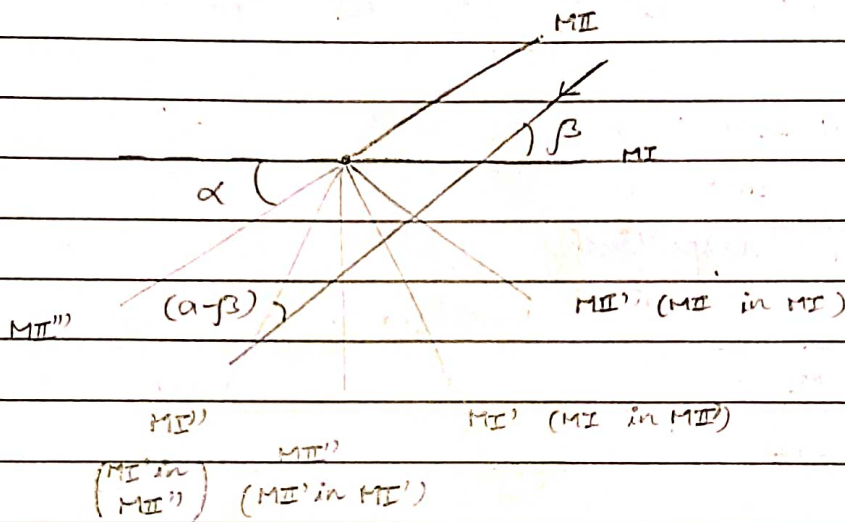 MII
β
MI
α
(α-β)
MII' (MII in MI)
MII'''
MI'' MI' (MI in MII')
MII''
(MI' in MII'') (MII' in MI')